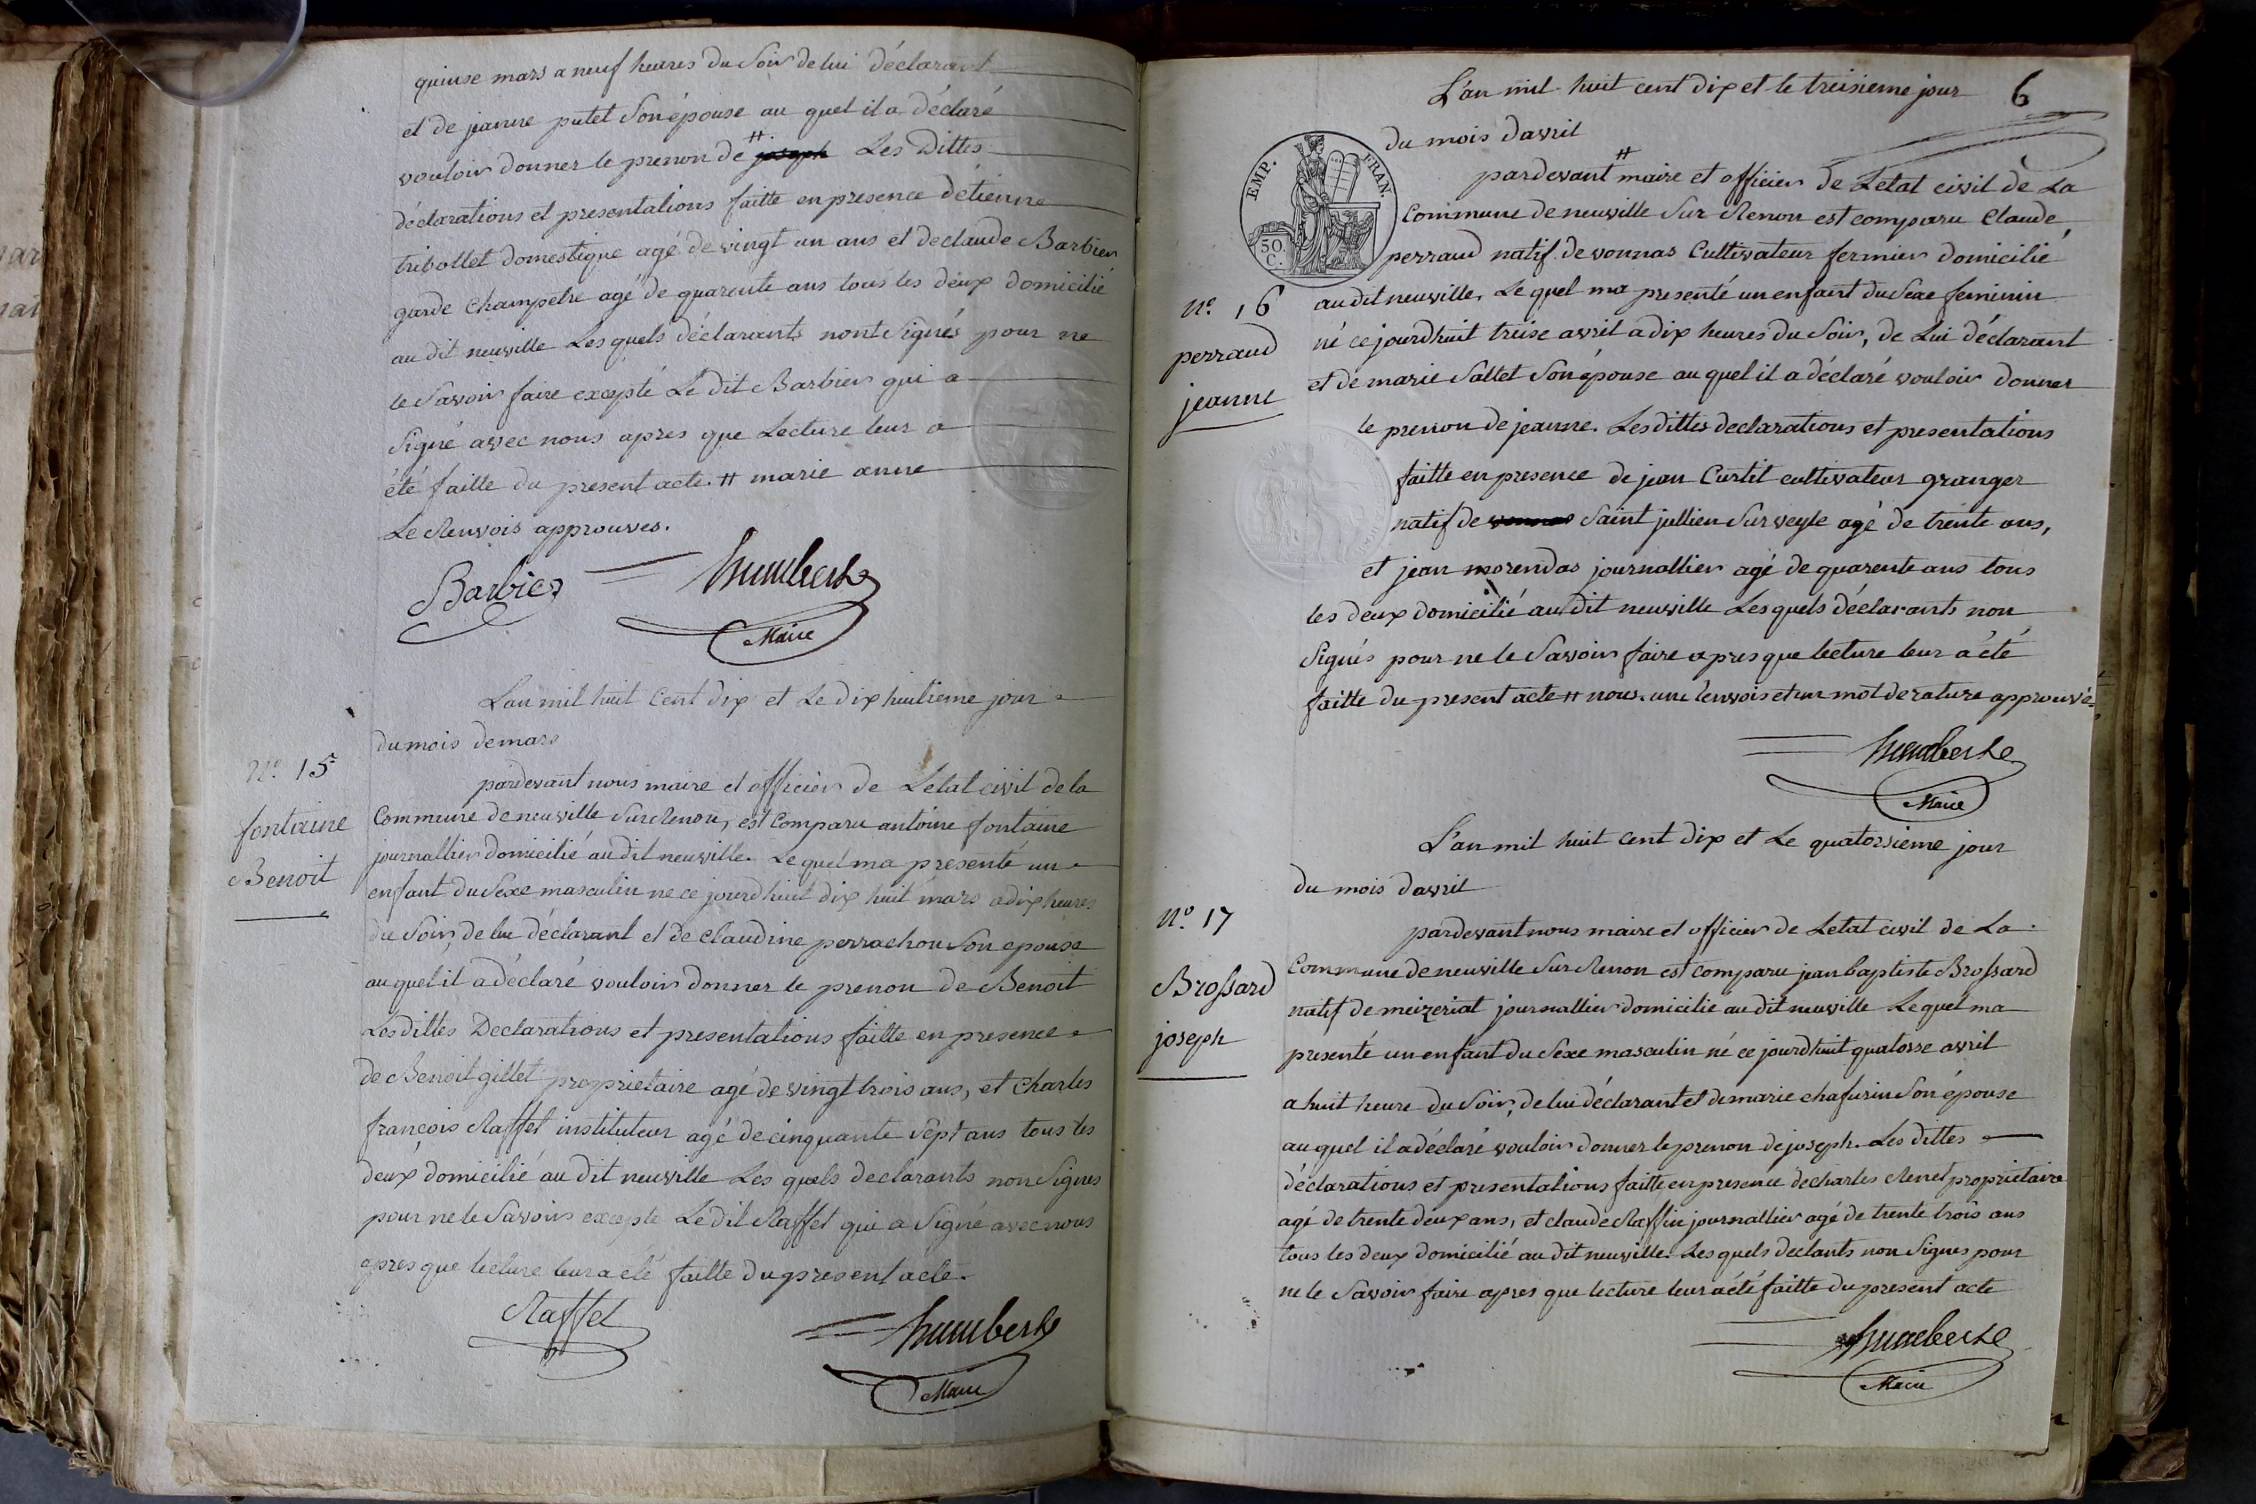 quinse mars a neuf heures du Soir de lui déclarant
et de jeanne putet Son épouse au quel il a déclaré
vouloir donner le prenon de joseph # Les Dittes
déclarations et presentations faitte en presence détienne
tribollet domestique agé de vingt un ans et de claude Barbier
garde champetre agé de quarente ans tous les deux domicilié
au dit neuville Les quels déclarants nont Signés pour ne
le Savoir faire excepté Le dit Barbier qui a
Signé avec nous apres que Lecture leur a
été faitte du present acte. # marie anne
Le Renvois approuves.
Barbier
humberte
Maire
L'an mil huit Cent dix et Le dix huitieme jour
du mois de mars
N.º 15
fontaine
Benoit
pardevant nous maire et officier de Letat civil de la
Commune de neuville Sur Renon, est Comparu antoine fontaine
journallier domicilié au dit neuville. Le quel ma presenté un
enfant du Sexe masculin ne ce jourdhuit dix huit mars a dix heures
du Soir, de lui déclarant et de Claudine perrachon Son epouse
au quel il a déclaré vouloir donner le prenon de Benoit
Les dittes Declarations et presentations faitte en presence
de Benoit gillet proprietaire agé de vingt trois ans, et Charles
françois Raffet instituteur agé de cinquante sept ans tous les
deux domicilié au dit neuville Les quels declarants non Signes
pour ne le Savoir excepte Le dit Raffet qui a Signé avec nous
apres que lecture leur a été faitte du present acte.
Raffet
humberte
Maire
6
L'an mil huit cent dix et le treisieme jour
du mois davril
EMP. FRAN.
50. C.
pardevant # maire et officier de Letat civil de La
Commune de neuville Sur Renon est comparu Claude
perraud natif de vonnas Cultivateur fermier domicilié
N.º 16
perraud
jeanne
au dit neuville, Le quel ma presenté un enfant du Sexe feminin
né ce jourdhuit treise avril a dix heures du Soir, de Lui déclarant
et de marie Sallet Son épouse au quel il a déclaré vouloir donner
le prenon de jeanne. Les dittes declarations et presentations
faitte en presence de jean Curtit cultivateur granger
natif de vonnas Saint jullien Sur veyle agé de trente ans,
et jean morendas journallier agé de quarente ans tous
les deux domicilié au dit neuville Les quels déclarants non
Signés pour ne le Savoir faire apres que lecture leur a été
faitte du present acte # nous. un renvois et un mot de rature approuvé
humberte
Maire
L'an mil huit cent dix et Le quatorsieme jour
du mois davril
N.º 17
Brossard
joseph
pardevant nous maire et officier de Letat civil de La
Commune de neuville Sur Renon est comparu jean baptiste Brossard
natif de meizeriat journallier domicilié au dit neuville Le quel ma
presenté un enfant du Sexe masculin né ce jourdhuit quatorse avril
a huit heure du Soir, de lui déclarant et de marie chafurin Son épouse
au quel il a déclaré vouloir donner le prenon de joseph. Les dittes
déclarations et presentations faitte en presence de charles Renet proprietaire
agé de trente deux ans, et claude Raffin journallier agé de trente trois ans
tous les deux domicilié au dit neuville. Les quels declants non Signes pour
ne le Savoir faire apres que lecture leur a été faitte du present acte
humberte
Maire